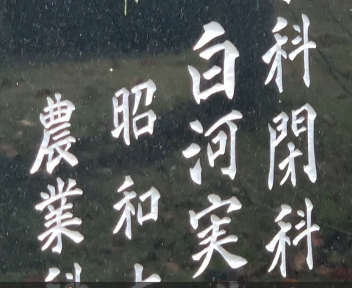 科閉科
白河実
昭和
農業